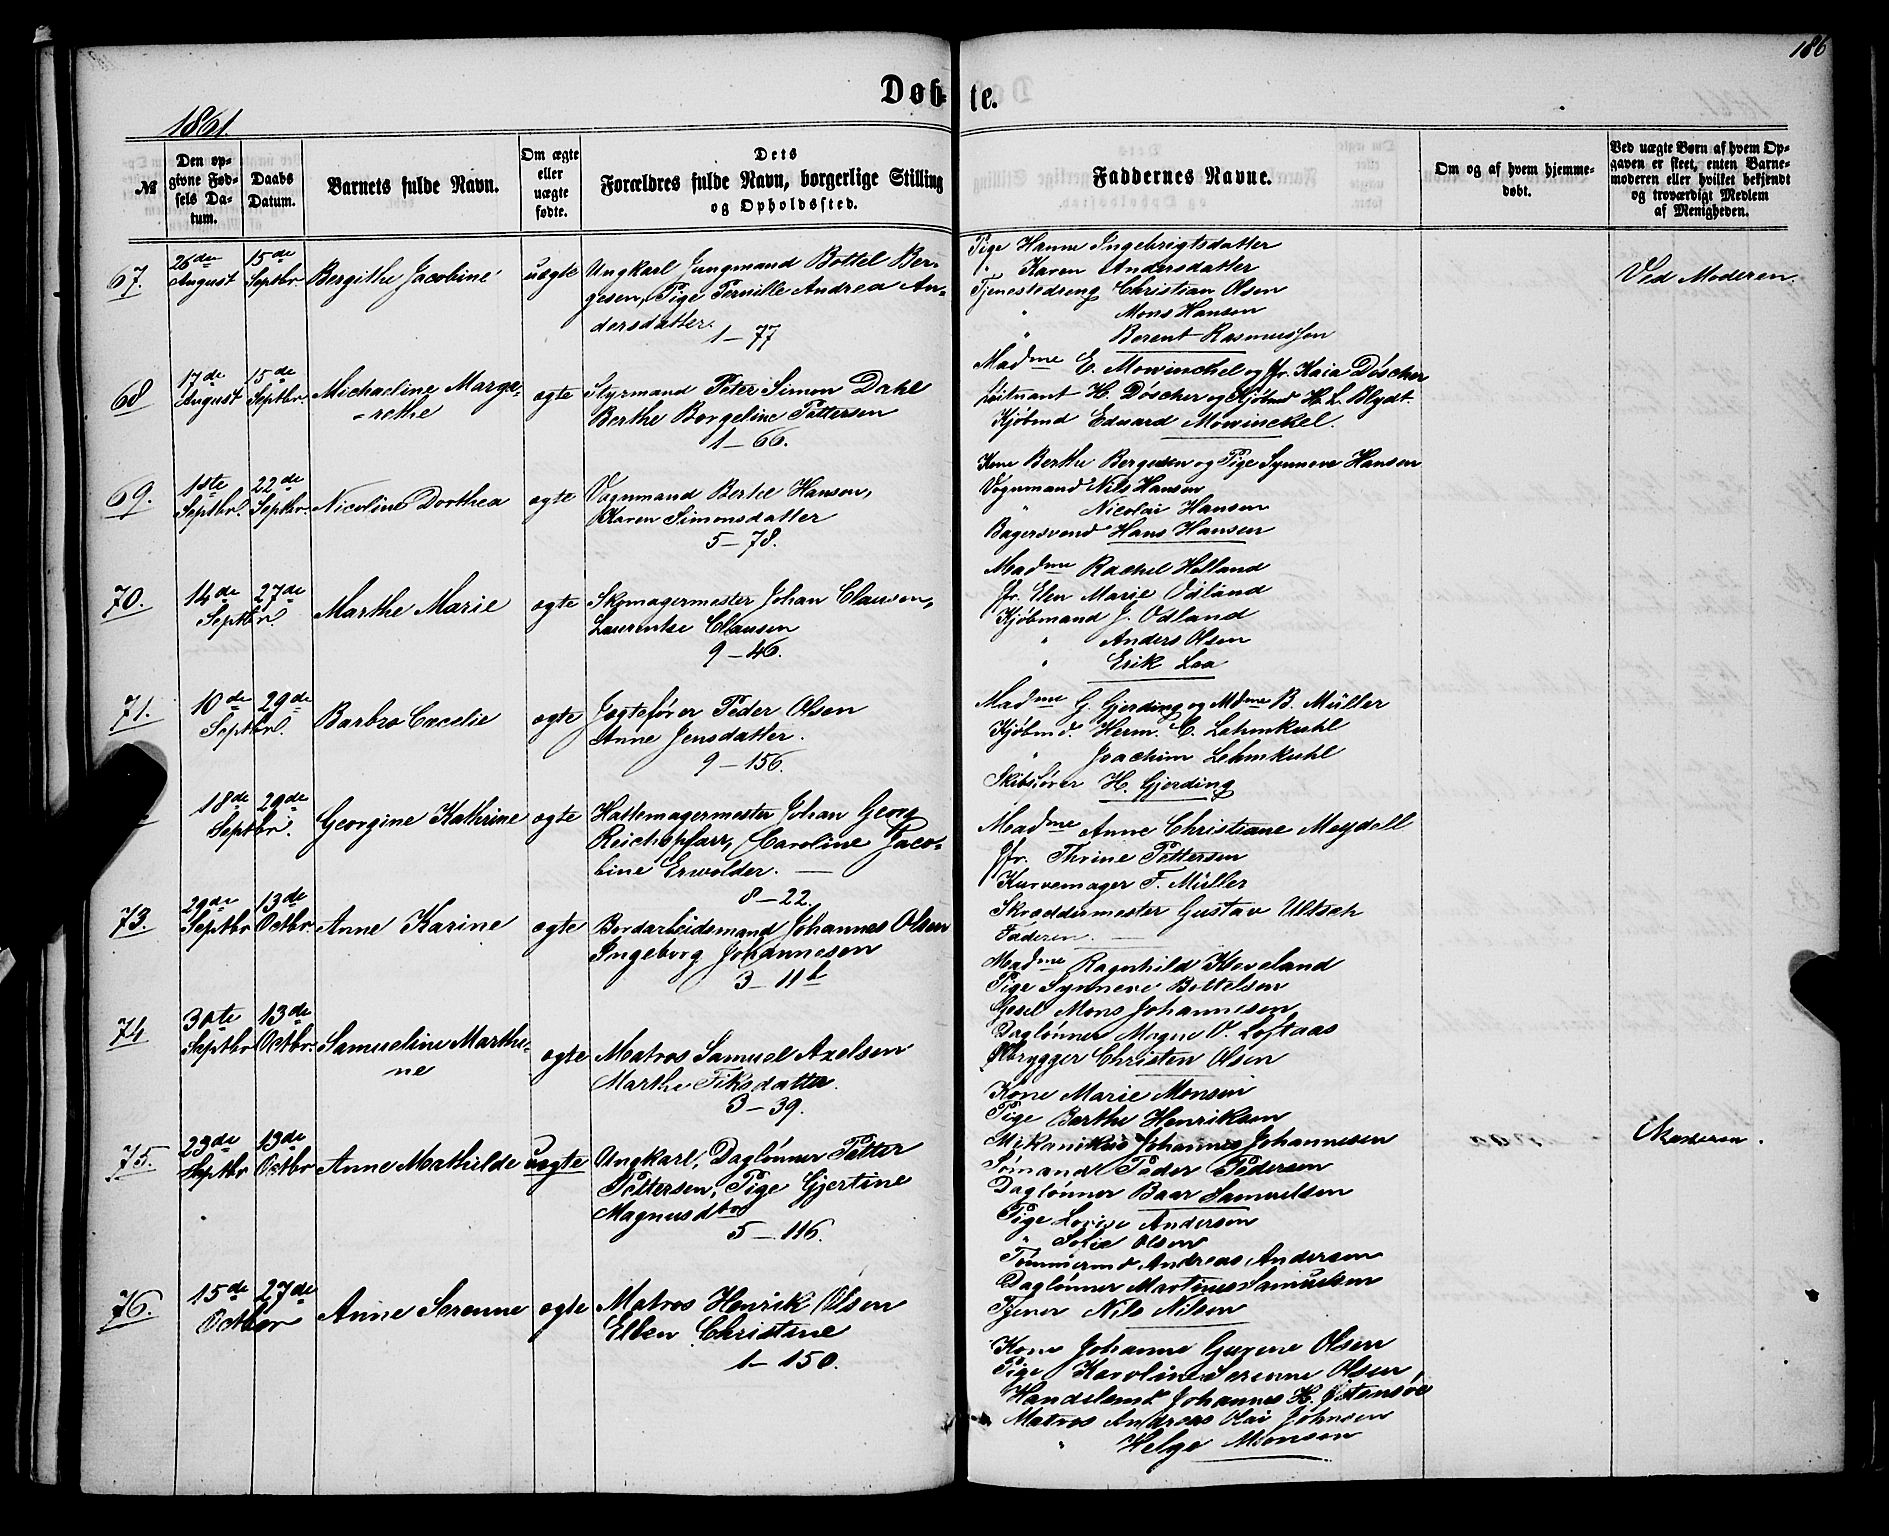 186
Døb- te.
1861.
№
Den op-
givne Fød-
sels Da-
tum.
Daabs
Datum.
Barnets fulde Navn.
Om ægte
eller
uægte
fødte.
Dets
Forældres fulde Navn, borgerlige Stilling
og Opholdssted.
Faddernes Navne.
Om og af hvem hjemme-
døbt.
Ved uægte Børn af hvem Op-
gaven er skeet, enten Barne-
moderen eller hvilket bekjendt
og troværdigt Medlem
af Menigheden.
67.
26de August
15de Septbr
Bergithe Jacobine
uægte
Ungkarl Jungmand Bottel Ber-
gesen, Pige Pernille Andrea An-
dersdatter.
1 – 77
Pige Hanne Ingebrigtsdatter
" Karen Andersdatter
Tjenestedreng Christian Olsen
" Mons Hansen
Berent Rasmussen
Ved Moderen.
68
17de August
15de Septbr
Michaeline Marga-
rethe
ægte
Styrmand Peter Simon Dahl
Berthe Borgeline Pettersen
1 – 66.
Madme E. Mowinckel og Jfr. Kaia Döscher
Leitnant H. Döscher og Kjøbmd H. L. Blydt
Kjøbmd Eduard Mowinckel.
69.
1ste Septbr.
22de Septbr.
Nicoline Dorthea
ægte
Vognmand Berhe Hansen,
Karen Simonsdatter
5 – 78.
Kone Berthe Bergesen og Pige Synneve Hansen
Vognmand Nils Hansen
" Nicolai Hansen
Bagersvend Hans Hansen
70.
14de 27de
Septbr.
Marthe Marie
ægte
Skomagermester Johan Clausen,
Laurentse Clausen
9 – 46.
Madme Rachel Helland
Jfr. Elen Marie Odland
Kjøbmand J. Odland
" Anders Olsen
" Erik Loa
71.
10de 29de
Septbr.
Barbro Cæcelie
ægte
Jagtefører Peder Olsen
Anne Jensdatter.
9 – 156.
Madme G. Gjerding og Mdme B. Müller
Kjøbmd. Herm. C. Lehmkuhl
" Joachim Lehmkuhl
Skibsfører H. Gjerding
18de 29de
Septbr.
Georgine Kathrine
ægte
Hattemagermester Johan Georg
Reichspfarr, Caroline Jaco-
bine Erwolder.
8 – 22.
Madme Anne Christiane Meydell
Jfr. Thrine Pettersen
Kurvemager F. Müller
Skræddermester Gustav Ultsch
Faderen.
73.
29de Septbr
13de Octbr
Anne Karine
ægte
Bordarbeidsmand Johannes Olsen
Ingeborg Johannesen
3 – 11b
Madme Ragnhild Kleveland
Pige Synneve Bottelsen
Gesel Mons Johannesen
Dagløner Magne O. Loftaas
Ølbrygger Christen Olsen
74
30te Septbr
13de Octbr.
Samueline Marthi-
ne
ægte
Matros Samuel Axelsen
Marthe Fiksdatter.
3 – 39.
Kone Marie Monsen
Pige Berthe Henriksen
Mekanikus Johannes Johannesen
Sømand Peder Pedersen
Dagløner Baar Samuelsen
75.
23de Septbr
13de Octbr
Anne Mathilde
uægte
Ungkarl, Dagløner Petter
Pettersen, Pige Gjertine
Magnusdtr
5 – 116.
Pige Lovise Andersen
" Sofie Olsen
Tømmermd Andreas Andersen
Dagløner Martinus Samuelsen
Tjener Nils Nilsen
Moderen.
76.
15de 27de
Octber
Anne Serenne
ægte
Matros Henrik Olsen
Ellen Christine
1 – 150.
Kone Johanne Gurine Olsen
Pige Karoline Serenne Olsen,
Handelsmd Johannes H.
Matros Andreas Olai Johnsen
" Helge Monsen